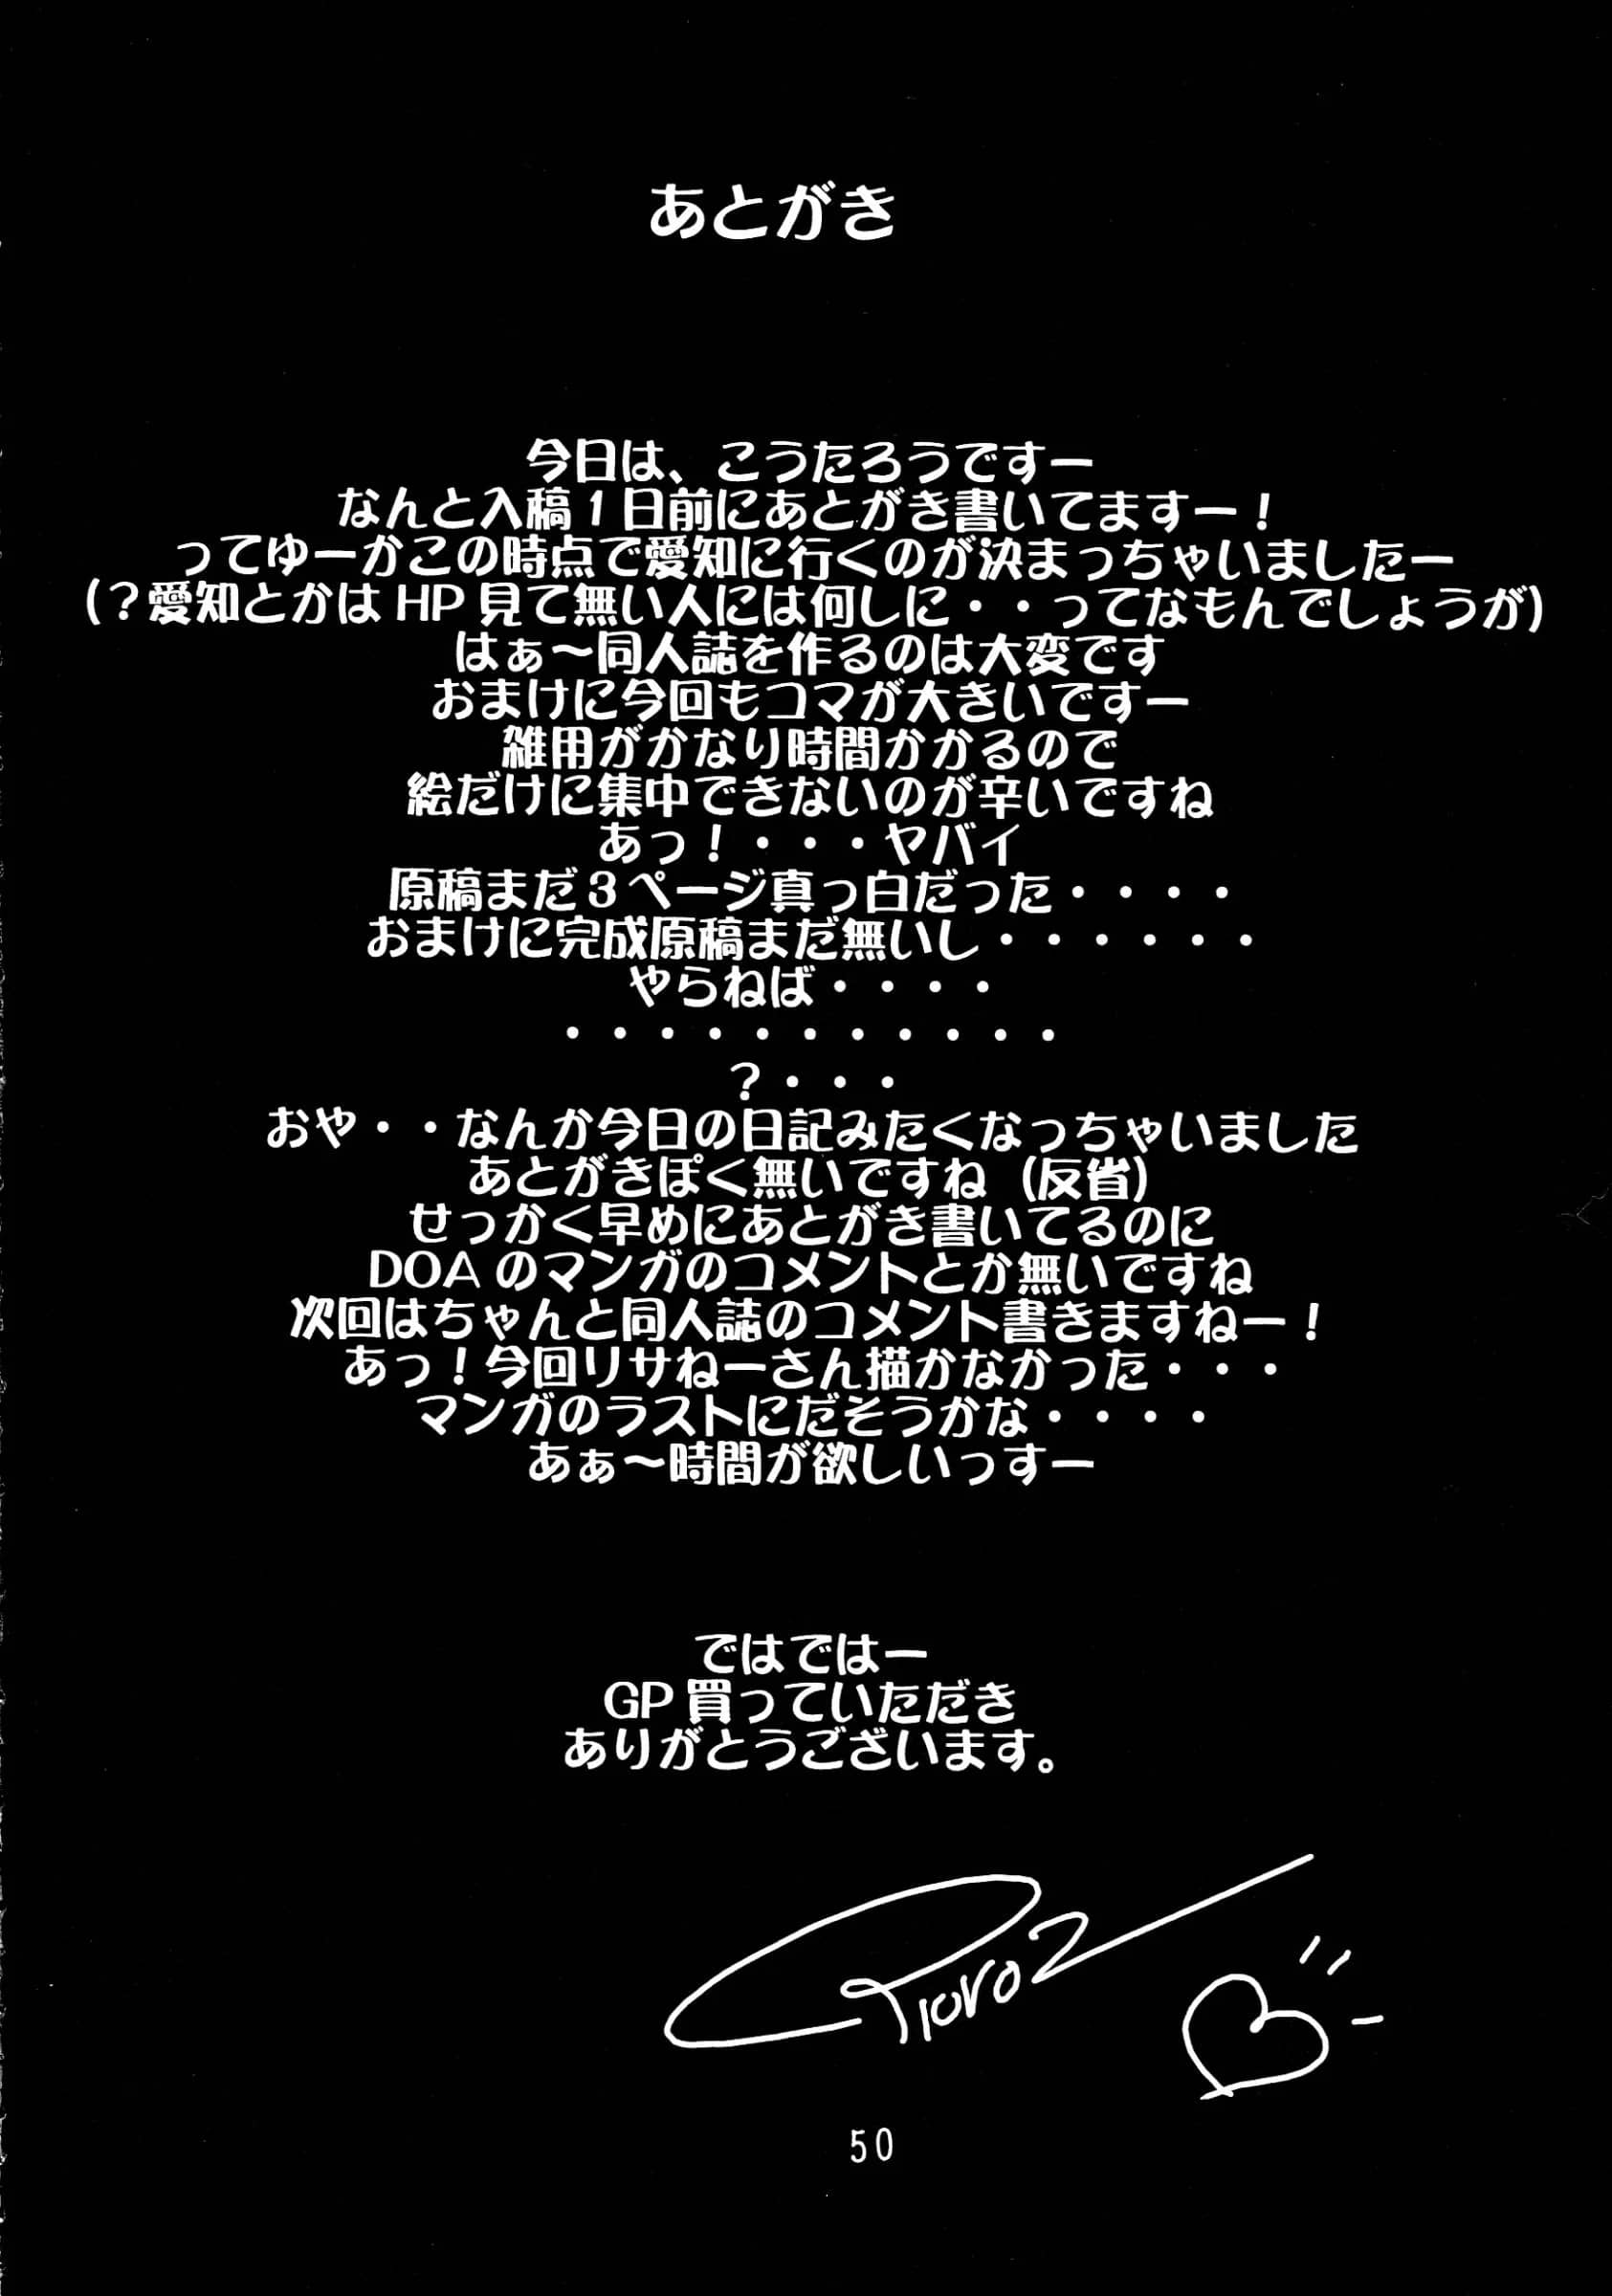 あとがき
今日は、こうたろうですー
なんと入稿1日前にあとがき書いてますー！
ってゆーかこの時点で愛知に行くのが決まっちゃいましたー
(？愛知とかは HP 見て無い人には何しに・・ってなもんでしょうが)
はぁ～同人誌を作るのは大変です
おまけに今回もコマが大きいですー
雑用がかなり時間かかるので
絵だけに集中できないのが辛いですね
あっ！・・・ヤバイ
原稿まだ3ページ真っ白だった・・・・
おまけに完成原稿まだ無いし・・・・・・
やらねば・・・・
・・・・・・・・・・・
？・・・
おや・・なんか今日の日記みたくなっちゃいました
あとがきぽく無いですね（反省）
せっかく早めにあとがき書いてるのに
DOA のマンガのコメントとか無いですね
次回はちゃんと同人誌のコメント書きますねー！
あっ！今回リサねーさん描かなかった・・・
マンガのラストにだそうかな・・・・
あぁ～時間が欲しいっすー
ではではー
GP 買っていただき
ありがとうございます。
50